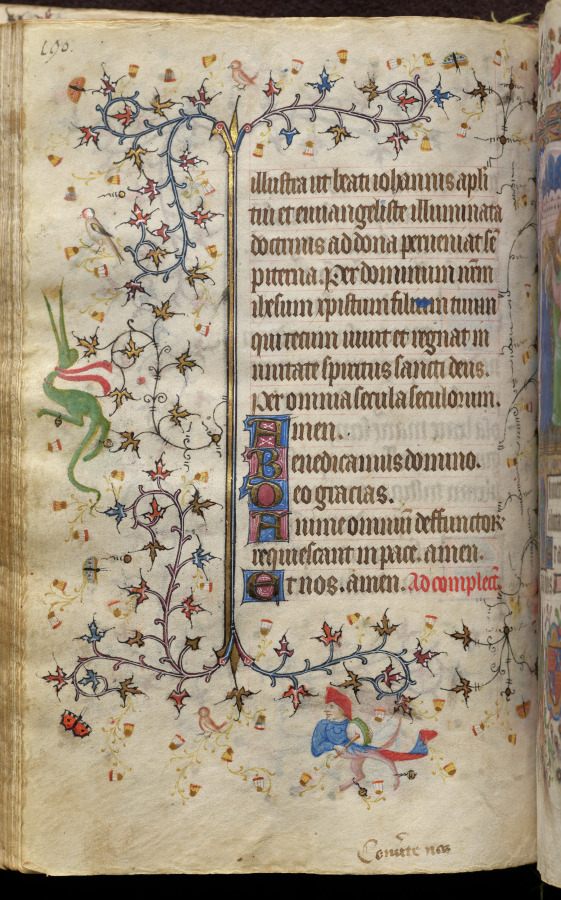 190.
illustra ut beati iohannis apli
tui et euuangeliste illuminata
doctrinis ad dona perueniat sē
piterna. Per dominum nr̄m
ihesum xpistum filium tuum
qui tecum uiuit et regnat in
unitate spiritus sancti deus.
Per omnia secula seculorum.
Amen.
Benedicamus domino.
Deo gracias.
Anime omniū deffunctor
requiescant in pace. amen.
Et nos. amen. Ad complect̄
Conuīte nos